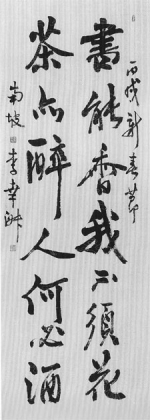 丙戌新春节
書能香我不須花
茶亦醉人何必酒
南坡
李幸